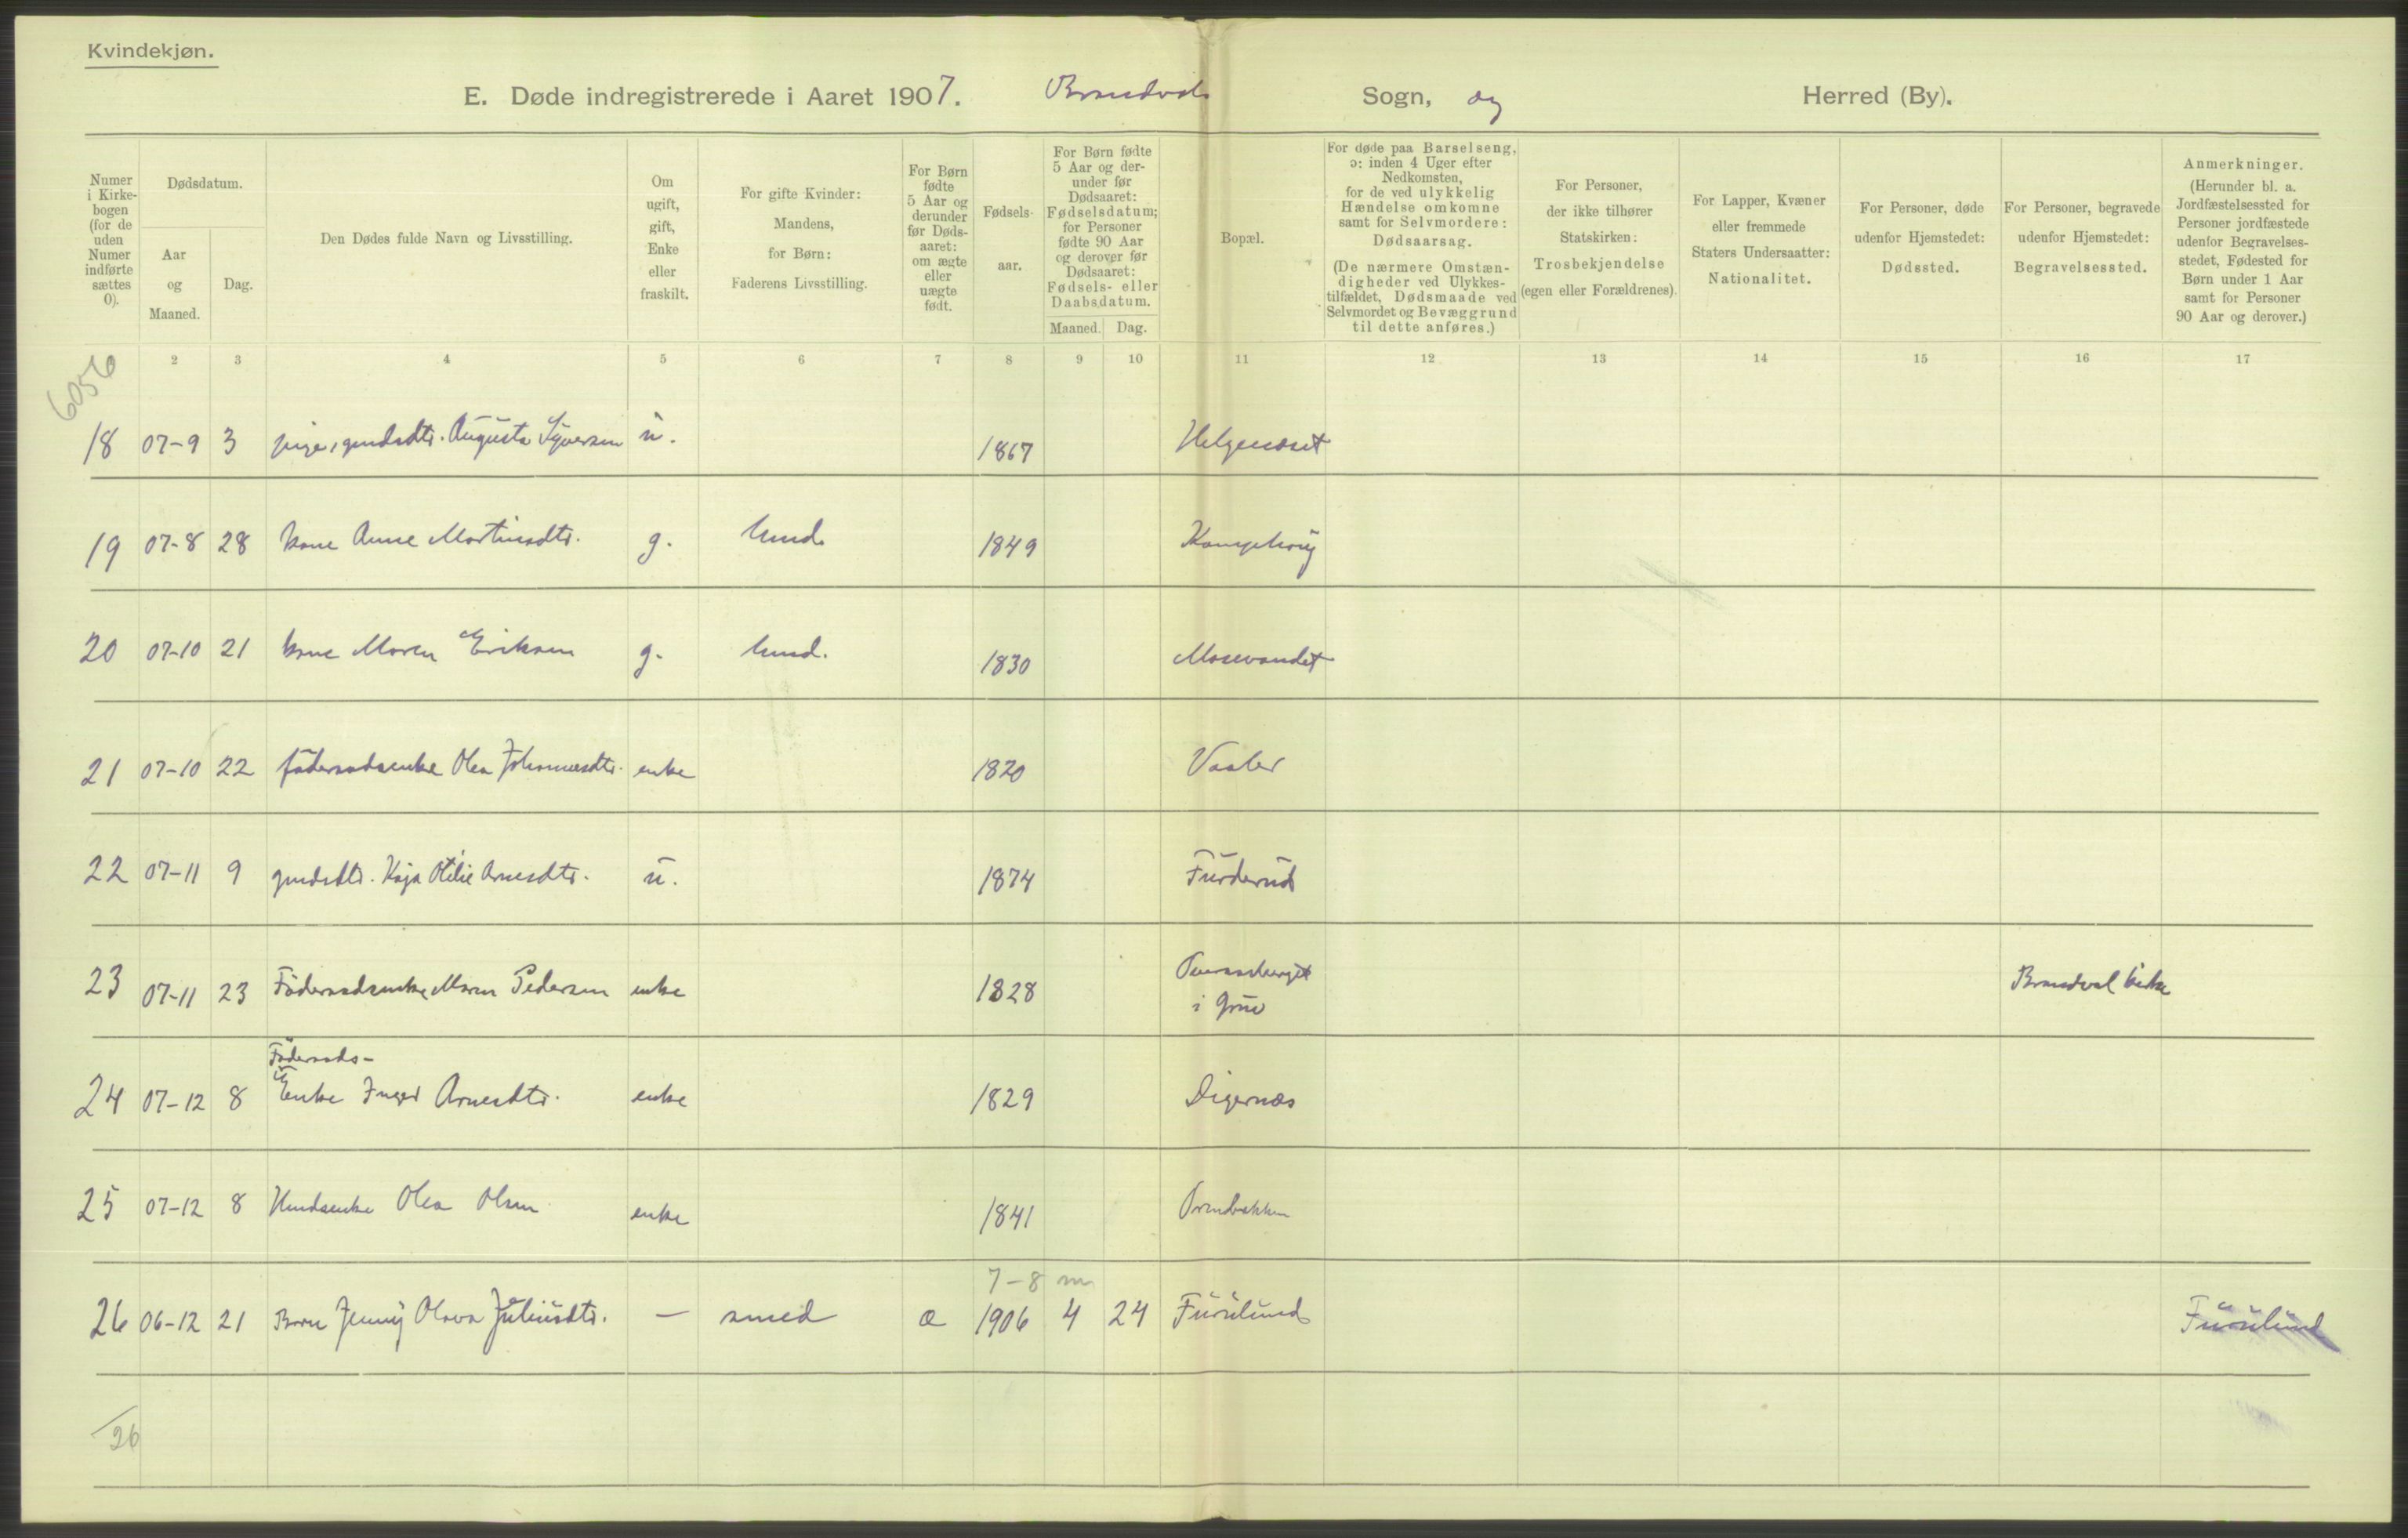 Kvindekjøn.
E. Døde indregistrerede i Aaret 1907. Brandvold Sogn, og Herred (By).
Numer i Kirke-bogen (for de uden Numer indførte sættes 0).
Dødsdatum.
Aar og Maaned.
Dag.
Den Dødes fulde Navn og Livsstilling.
Om ugift, gift, Enke eller fraskilt.
For gifte Kvinder: Mandens, for Børn: Faderens Livsstilling.
For Børn fødte 5 Aar og derunder før Døds-aaret: om ægte eller uægte født.
Fødsels-aar.
For Børn fødte 5 Aar og der-under før Dødsaaret: Fødselsdatum; for Personer fødte 90 Aar og derover før Dødsaaret: Fødsels- eller Daabsdatum.
Maaned. Dag.
Bopæl.
For døde paa Barselseng, ɔ: inden 4 Uger efter Nedkomsten, for de ved ulykkelig Hændelse omkomne samt for Selvmordere: Dødsaarsag. (De nærmere Omstæn-digheder ved Ulykkes-tilfældet, Dødsmaade ved Selvmordet og Bevæggrund til dette anføres.)
For Personer, der ikke tilhører Statskirken: Trosbekjendelse (egen eller Forældrenes).
For Lapper, Kvæner eller fremmede Staters Undersaatter: Nationalitet.
For Personer, døde udenfor Hjemstedet: Dødssted.
For Personer, begravede udenfor Hjemstedet: Begravelsessted.
Anmerkninger. (Herunder bl. a. Jordfæstelsessted for Personer jordfæstede udenfor Begravelses-stedet, Fødested for Børn under 1 Aar samt for Personer 90 Aar og derover.)
2 3 4 5 6 7 8 9 10 11 12 13 14 15 16 17
6056
18 07-9 3 pige, gmdsdtr. Augusta Syversen u. 1867 Helgenæset
19 07-8 28 kone Anne Martinsdtr. g. hmd. 1849 Kampehaug
20 07-10 21 kone Maren Eriksen g. hmd. 1830 Masevandet
21 07-10 22 føderaadsenke Olea Johannesdtr. enke 1820 Vaaler
22 07-11 9 gmdsdtr. Kaja Otilie Arnesdtr. u. 1874 Furderud
23 07-11 23 Føderaadsenke Maren Pedersen enke 1828 i Grue Brandval kirke
24 07-12 8 Føderaads-
Enke Inger Arnesdtr. enke 1829 Digernæs
25 07-12 8 Hmdsenke Olea Olsen enke 1841
7-8 m
26 06-12 21 Barn Jenny Olava Juliusdtr. — smed æ 1906 4 24 Furulund Furulund
26